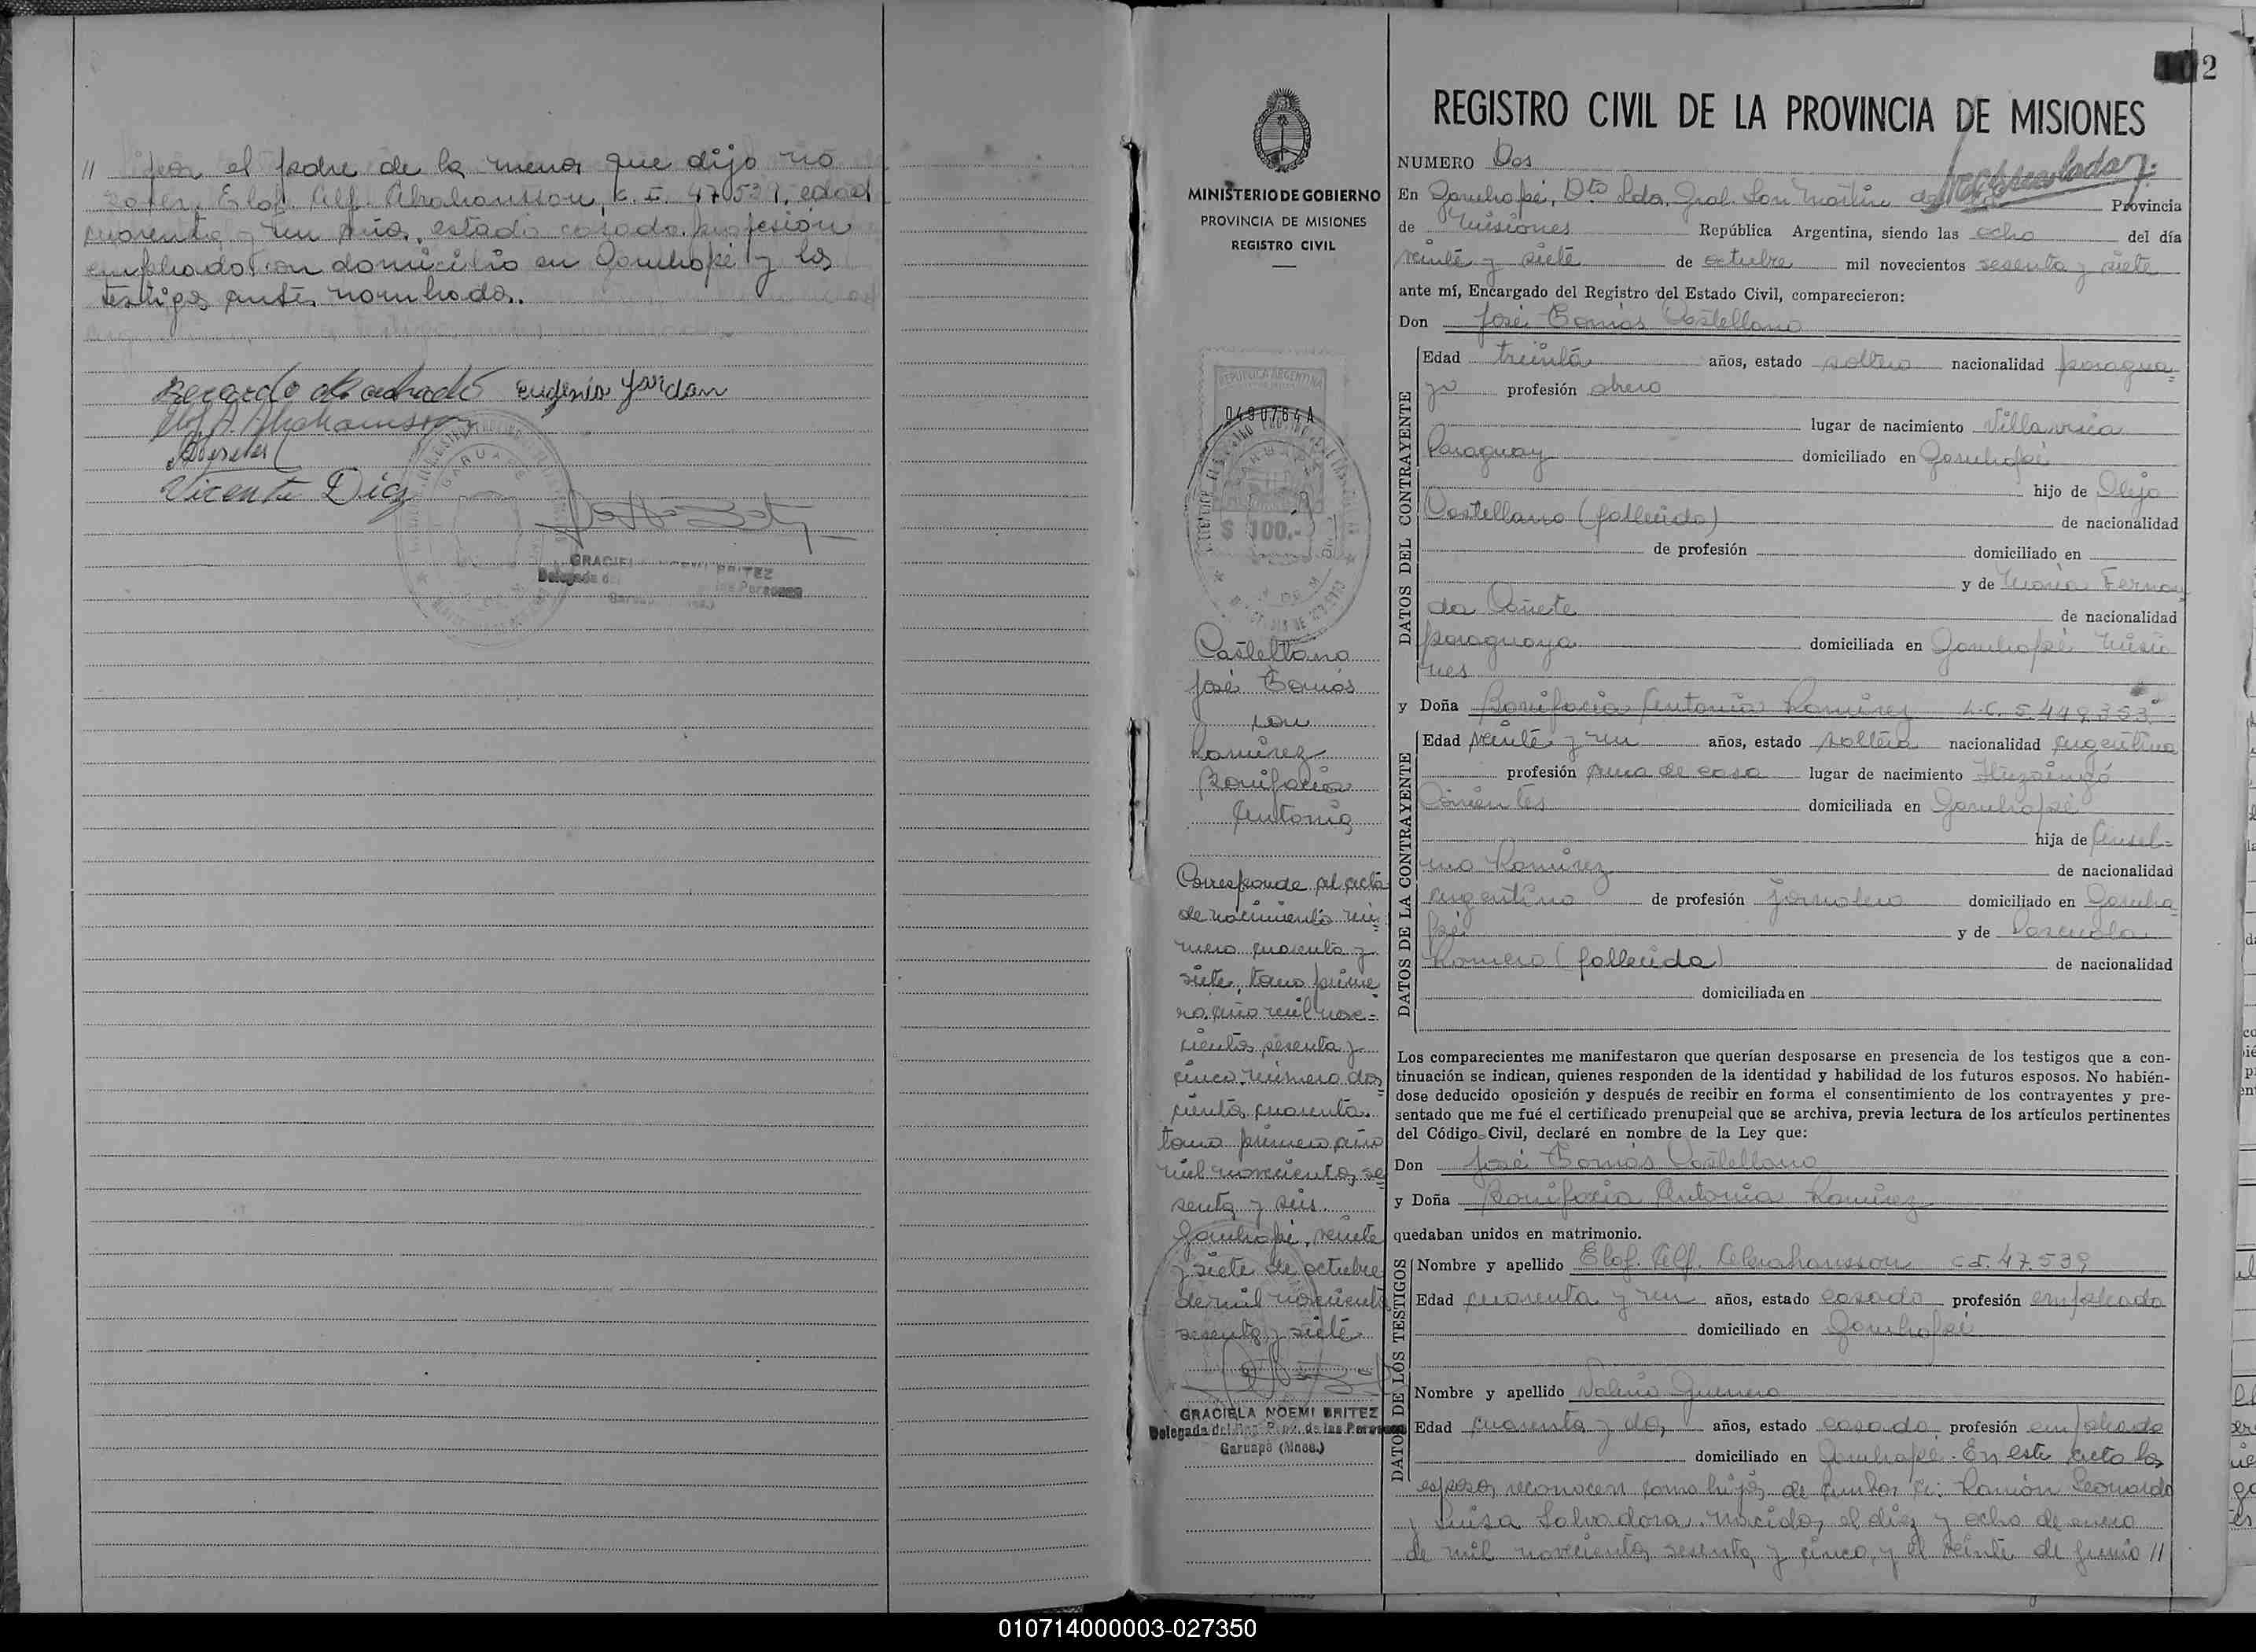 // por el padre de la menor que dijo no
saber, Elof. Alf. Abrahansson, C. I. 47.539, edad
cuarenta y un años, estado casado, profesión
empleado, con domicilio en Garuhapé y los
testigos antes nombrados.
Eugenia Jardan
Vicente Diaz
GARUAPE
GRACIELA NOEMI BRITEZ
Delegada de las Personas
2
MINISTERIO DE GOBIERNO
PROVINCIA DE MISIONES
REGISTRO CIVIL
REPUBLICA ARGENTINA
0490764 A
$ 100.-
Castellano
José Tomás
con
Ramírez
Bonifacia
Antonia
Corresponde al acta
de nacimiento nú-
mero cuarenta y
siete, tomo prime
ro, año mil nove-
cientos sesenta y
cinco. Número dos
cientos cuarenta.
tomo primero año
mil novecientos se
senta y seis.
Garuhapé, veinte
y siete de octubre
de mil novecientos
sesenta y siete
GRACIELA NOEMI BRITEZ
Delegada del Reg. Prov. de las Personas
Garuapé (Mnes.)
REGISTRO CIVIL DE LA PROVINCIA DE MISIONES
NUMERO Dos
En Garuhapé, Dto Lda. Gral. San Martín Provincia
de Misiones República Argentina, siendo las ocho del día
veinte y siete de octubre mil novecientos sesenta y siete
ante mí, Encargado del Registro del Estado Civil, comparecieron:
Don José Tomás Castellano
DATOS DEL CONTRAYENTE
Edad treinta años, estado soltero nacionalidad paragua-
yo profesión obrero
lugar de nacimiento Villarrica
Paraguay domiciliado en Garuhapé
hijo de Alejo
Castellano (fallecido) de nacionalidad
de profesión domiciliado en
y de María Fernan
da Cañete de nacionalidad
paraguaya domiciliada en Garuhapé Misio
nes
y Doña Bonifacia Antonia Ramírez L.C. 5.449.353
DATOS DE LA CONTRAYENTE
Edad veinte y un años, estado soltera nacionalidad argentina
profesión ama de casa lugar de nacimiento Ituzaingó
Corrientes domiciliada en Garuhapé
hija de Ansel-
mo Ramírez de nacionalidad
argentino de profesión jornalero domiciliado en Garuha
pé y de Pascuala
Romero (fallecida) de nacionalidad
domiciliada en
Los comparecientes me manifestaron que querían desposarse en presencia de los testigos que a con-
tinuación se indican, quienes responden de la identidad y habilidad de los futuros esposos. No habién-
dose deducido oposición y después de recibir en forma el consentimiento de los contrayentes y pre-
sentado que me fué el certificado prenupcial que se archiva, previa lectura de los artículos pertinentes
del Código Civil, declaré en nombre de la Ley que:
Don José Tomás Castellano
y Doña Bonifacia Antonia Ramírez
quedaban unidos en matrimonio.
DATOS DE LOS TESTIGOS
Nombre y apellido Elof. Alf. Abrahansson C.I. 47.539
Edad cuarenta y un años, estado casado profesión empleado
domiciliado en Garuhapé
Nombre y apellido Valerio Guerrero
Edad cuarenta y dos años, estado casado profesión empleado
domiciliado en Garuhapé. En este acto los
esposos reconocen como hijos de ambos a: Ramón Leonardo
y Luisa Salvadora, nacidos el diez y ocho de enero
de mil novecientos sesenta y cinco, y el veinte de junio //
010714000003-027350